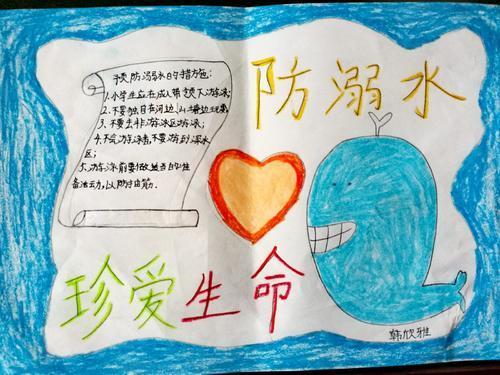 防溺水
预防溺水的措施:
1.小学生应在成人带领下游泳;
2.不要独自在河边、山塘边玩耍;
3.不要去非游泳区游泳;
4.不会游泳者,不要游到深水
区;
5.游泳前要做适当的准
备活动,以防抽筋.
珍爱生命
韩欣雅